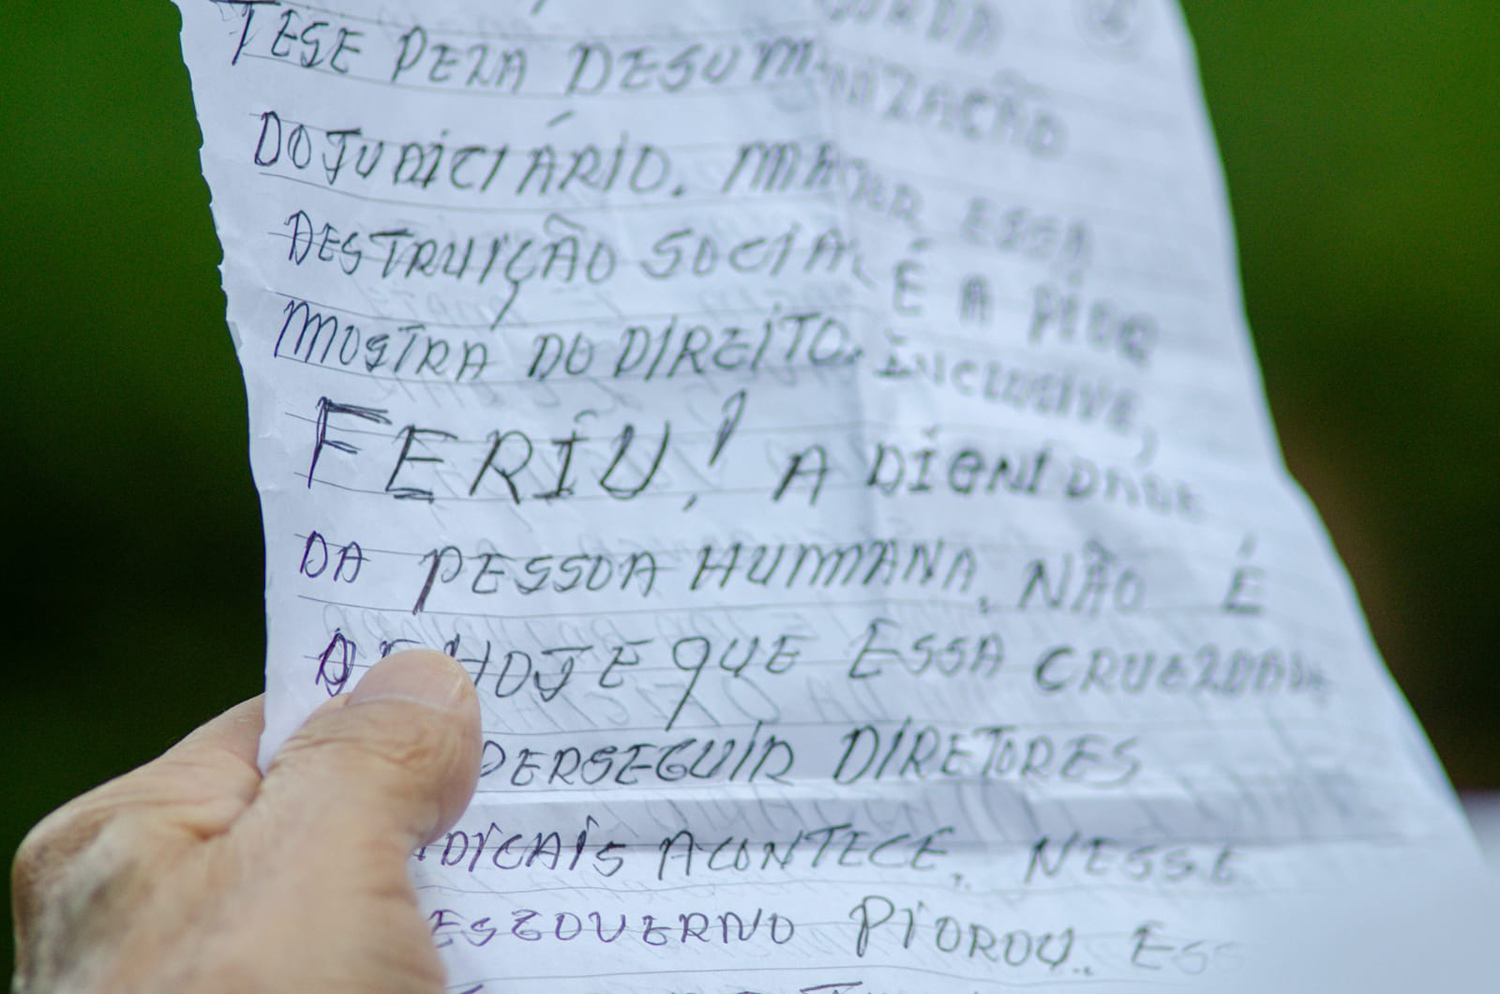 TESE PELA DESUMANIZAÇÃO
DO JUDICIÁRIO. MATAR ESSA
DESTRUIÇÃO SOCIAL É A PIOR
MOSTRA DO DIREITO. INCLUSIVE,
FERIU, A DIGNIDADE
DA PESSOA HUMANA. NÃO É
DE HOJE QUE ESSA CRUELDADE
PERSEGUIR DIRETORES
DICAIS ACONTECE. NESSE
ESGOVERNO PIOROU. ESS